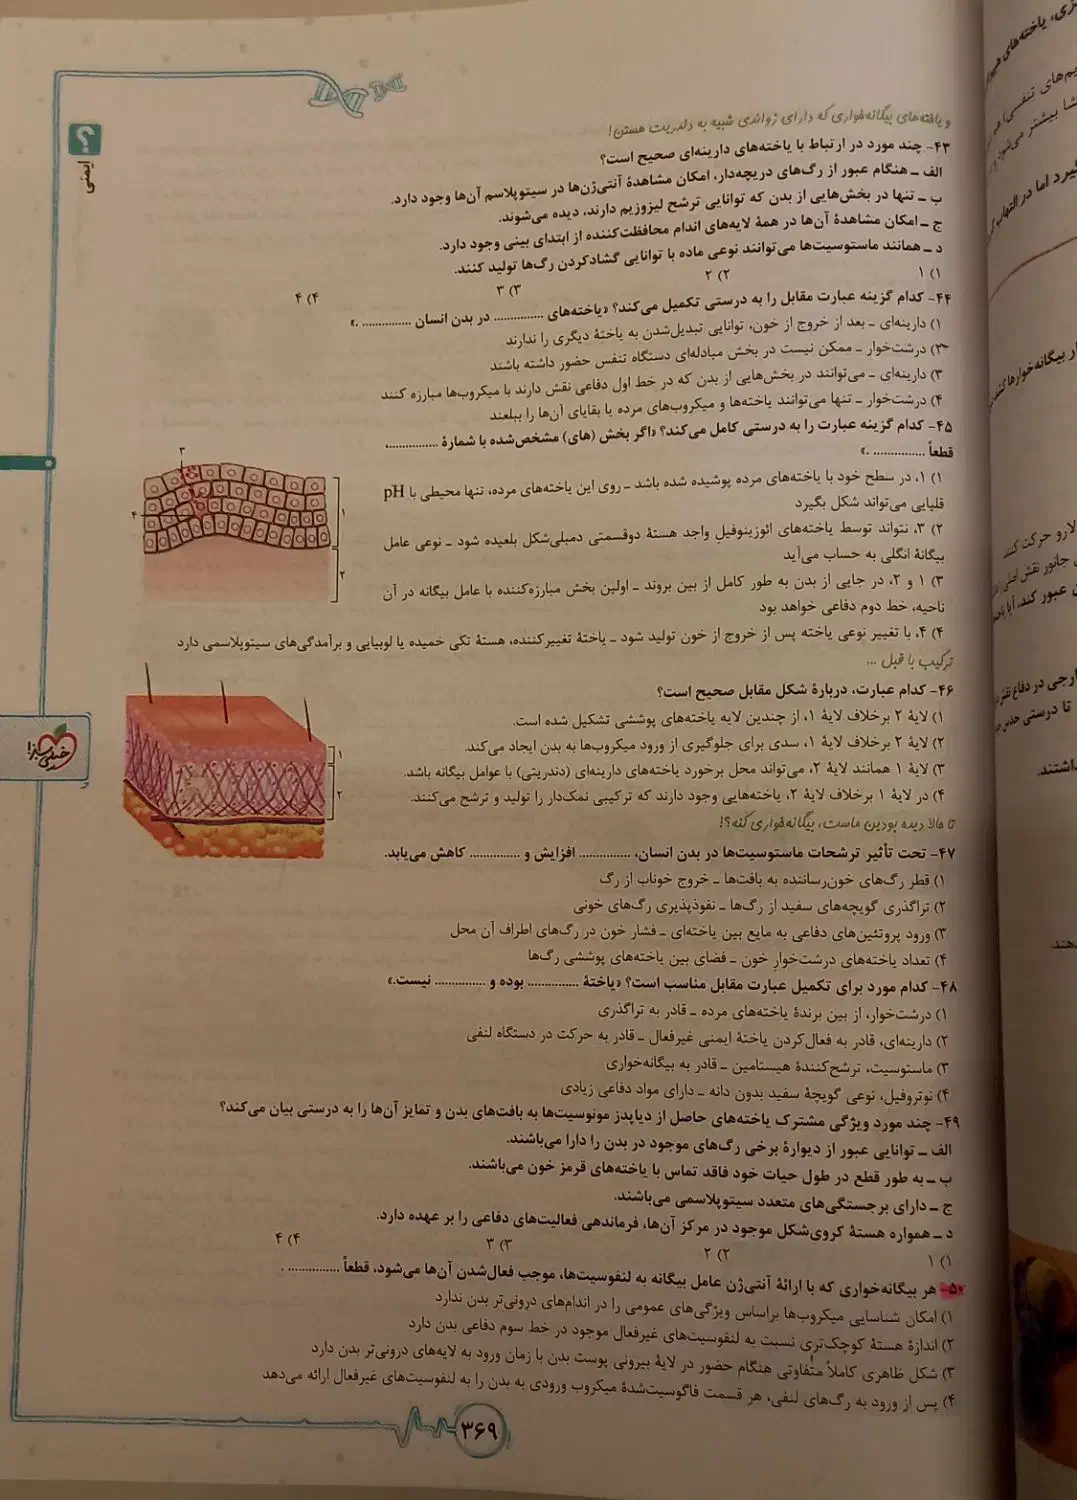 ایمنی
و یاخته‌های بیگانه‌خواری که دارای زوائدی شبیه به دندریت هستن!
۴۳- چند مورد در ارتباط با یاخته‌های دارینه‌ای صحیح است؟
الف ـ هنگام عبور از رگ‌های دریچه‌دار، امکان مشاهدهٔ آنتی‌ژن‌ها در سیتوپلاسم آن‌ها وجود دارد.
ب ـ تنها در بخش‌هایی از بدن که توانایی ترشح لیزوزیم دارند، دیده می‌شوند.
ج ـ امکان مشاهدهٔ آن‌ها در همهٔ لایه‌های اندام محافظت‌کننده از ابتدای بینی وجود دارد.
د ـ همانند ماستوسیت‌ها می‌توانند نوعی ماده با توانایی گشادکردن رگ‌ها تولید کنند.
۱) ۱ ۲) ۲ ۳) ۳ ۴) ۴
۴۴- کدام گزینه عبارت مقابل را به درستی تکمیل می‌کند؟ «یاخته‌های .............. در بدن انسان .............. .»
۱) دارینه‌ای ـ بعد از خروج از خون، توانایی تبدیل‌شدن به یاختهٔ دیگری را ندارند
۲) درشت‌خوار ـ ممکن نیست در بخش مبادله‌ای دستگاه تنفس حضور داشته باشند
۳) دارینه‌ای ـ می‌توانند در بخش‌هایی از بدن که در خط اول دفاعی نقش دارند با میکروب‌ها مبارزه کنند
۴) درشت‌خوار ـ تنها می‌توانند یاخته‌ها و میکروب‌های مرده یا بقایای آن‌ها را ببلعند
۴۵- کدام گزینه عبارت را به درستی کامل می‌کند؟ «اگر بخش (های) مشخص‌شده با شمارهٔ ..............،
قطعاً .............. .»
۱) ۱، در سطح خود با یاخته‌های مرده پوشیده شده باشد ـ روی این یاخته‌های مرده، تنها محیطی با pH
قلیایی می‌تواند شکل بگیرد
۲) ۳، نتواند توسط یاخته‌های ائوزینوفیل واجد هستهٔ دوقسمتی دمبلی‌شکل بلعیده شود ـ نوعی عامل
بیگانهٔ انگلی به حساب می‌آید
۳) ۱ و ۲، در جایی از بدن به طور کامل از بین بروند ـ اولین بخش مبارزه‌کننده با عامل بیگانه در آن
ناحیه، خط دوم دفاعی خواهد بود
۴) ۴، با تغییر نوعی یاخته پس از خروج از خون تولید شود ـ یاختهٔ تغییرکننده، هستهٔ تکی خمیده یا لوبیایی و برآمدگی‌های سیتوپلاسمی دارد
۳
۴
۱
۲
ترکیب با قبل ...
۴۶- کدام عبارت، دربارهٔ شکل مقابل صحیح است؟
۱) لایهٔ ۲ برخلاف لایهٔ ۱، از چندین لایه یاخته‌های پوششی تشکیل شده است.
۲) لایهٔ ۲ برخلاف لایهٔ ۱، سدی برای جلوگیری از ورود میکروب‌ها به بدن ایجاد می‌کند.
۳) لایهٔ ۱ همانند لایهٔ ۲، می‌تواند محل برخورد یاخته‌های دارینه‌ای (دندریتی) با عوامل بیگانه باشد.
۴) در لایهٔ ۱ برخلاف لایهٔ ۲، یاخته‌هایی وجود دارند که ترکیبی نمک‌دار را تولید و ترشح می‌کنند.
۱
۲
تا حالا دیده بودین ماست، بیگانه‌خواری کنه؟!
۴۷- تحت تأثیر ترشحات ماستوسیت‌ها در بدن انسان، .............. افزایش و .............. کاهش می‌یابد.
۱) قطر رگ‌های خون‌رساننده به بافت‌ها ـ خروج خوناب از رگ
۲) تراگذری گویچه‌های سفید از رگ‌ها ـ نفوذپذیری رگ‌های خونی
۳) ورود پروتئین‌های دفاعی به مایع بین یاخته‌ای ـ فشار خون در رگ‌های اطراف آن محل
۴) تعداد یاخته‌های درشت‌خوار خون ـ فضای بین یاخته‌های پوششی رگ‌ها
۴۸- کدام مورد برای تکمیل عبارت مقابل مناسب است؟ «یاختهٔ .............. بوده و .............. نیست.»
۱) درشت‌خوار، از بین برندهٔ یاخته‌های مرده ـ قادر به تراگذری
۲) دارینه‌ای، قادر به فعال‌کردن یاختهٔ ایمنی غیرفعال ـ قادر به حرکت در دستگاه لنفی
۳) ماستوسیت، ترشح‌کنندهٔ هیستامین ـ قادر به بیگانه‌خواری
۴) نوتروفیل، نوعی گویچهٔ سفید بدون دانه ـ دارای مواد دفاعی زیادی
۴۹- چند مورد ویژگی مشترک یاخته‌های حاصل از دیاپدز مونوسیت‌ها به بافت‌های بدن و تمایز آن‌ها را به درستی بیان می‌کند؟
الف ـ توانایی عبور از دیوارهٔ برخی رگ‌های موجود در بدن را دارا می‌باشند.
ب ـ به طور قطع در طول حیات خود فاقد تماس با یاخته‌های قرمز خون می‌باشند.
ج ـ دارای برجستگی‌های متعدد سیتوپلاسمی می‌باشند.
د ـ همواره هستهٔ کروی‌شکل موجود در مرکز آن‌ها، فرماندهی فعالیت‌های دفاعی را بر عهده دارد.
۱) ۱ ۲) ۲ ۳) ۳ ۴) ۴
۵۰- هر بیگانه‌خواری که با ارائهٔ آنتی‌ژن عامل بیگانه به لنفوسیت‌ها، موجب فعال‌شدن آن‌ها می‌شود، قطعاً .............. .
۱) امکان شناسایی میکروب‌ها براساس ویژگی‌های عمومی را در اندام‌های درونی‌تر بدن ندارد
۲) اندازهٔ هستهٔ کوچک‌تری نسبت به لنفوسیت‌های غیرفعال موجود در خط سوم دفاعی بدن دارد
۳) شکل ظاهری کاملاً متفاوتی هنگام حضور در لایهٔ بیرونی پوست بدن با زمان ورود به لایه‌های درونی‌تر بدن دارد
۴) پس از ورود به رگ‌های لنفی، هر قسمت فاگوسیت‌شدهٔ میکروب ورودی به بدن را به لنفوسیت‌های غیرفعال ارائه می‌دهد
خیلی سبز
۳۶۹